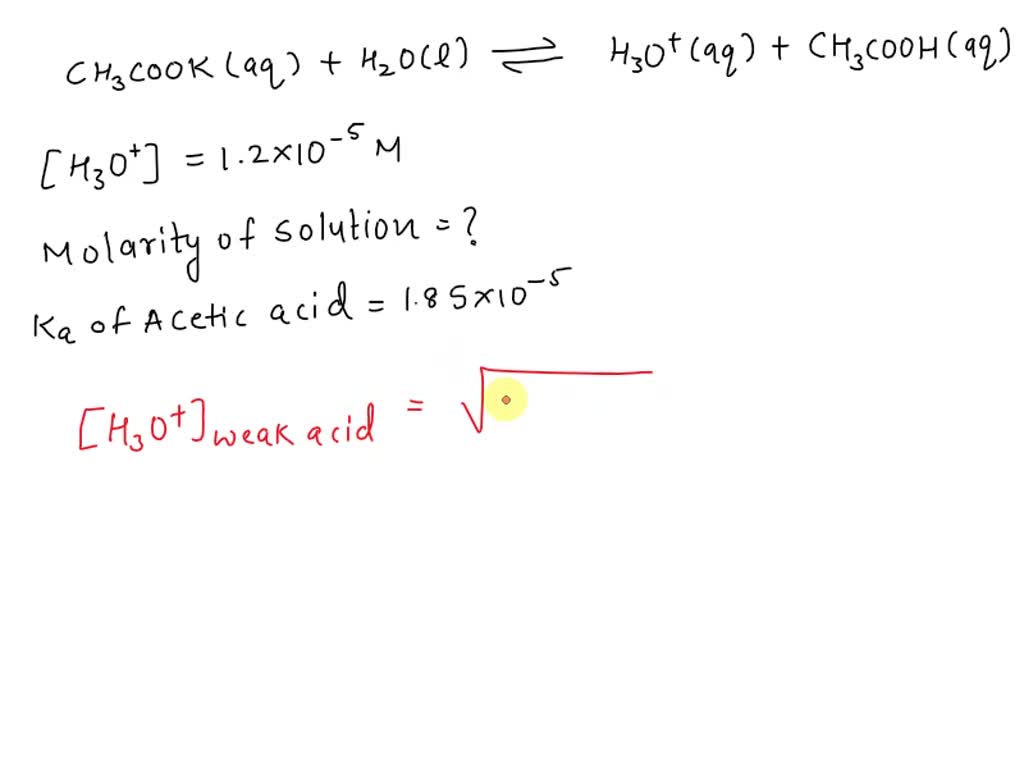 CH₃COOK (aq) + H₂O(l) ⇌ H₃O⁺ (aq) + CH₃COOH (aq)
[H₃O⁺] = 1.2×10⁻⁵ M
Molarity of solution = ?
Ka of Acetic acid = 1.85×10⁻⁵
[H₃O⁺]weak acid = √